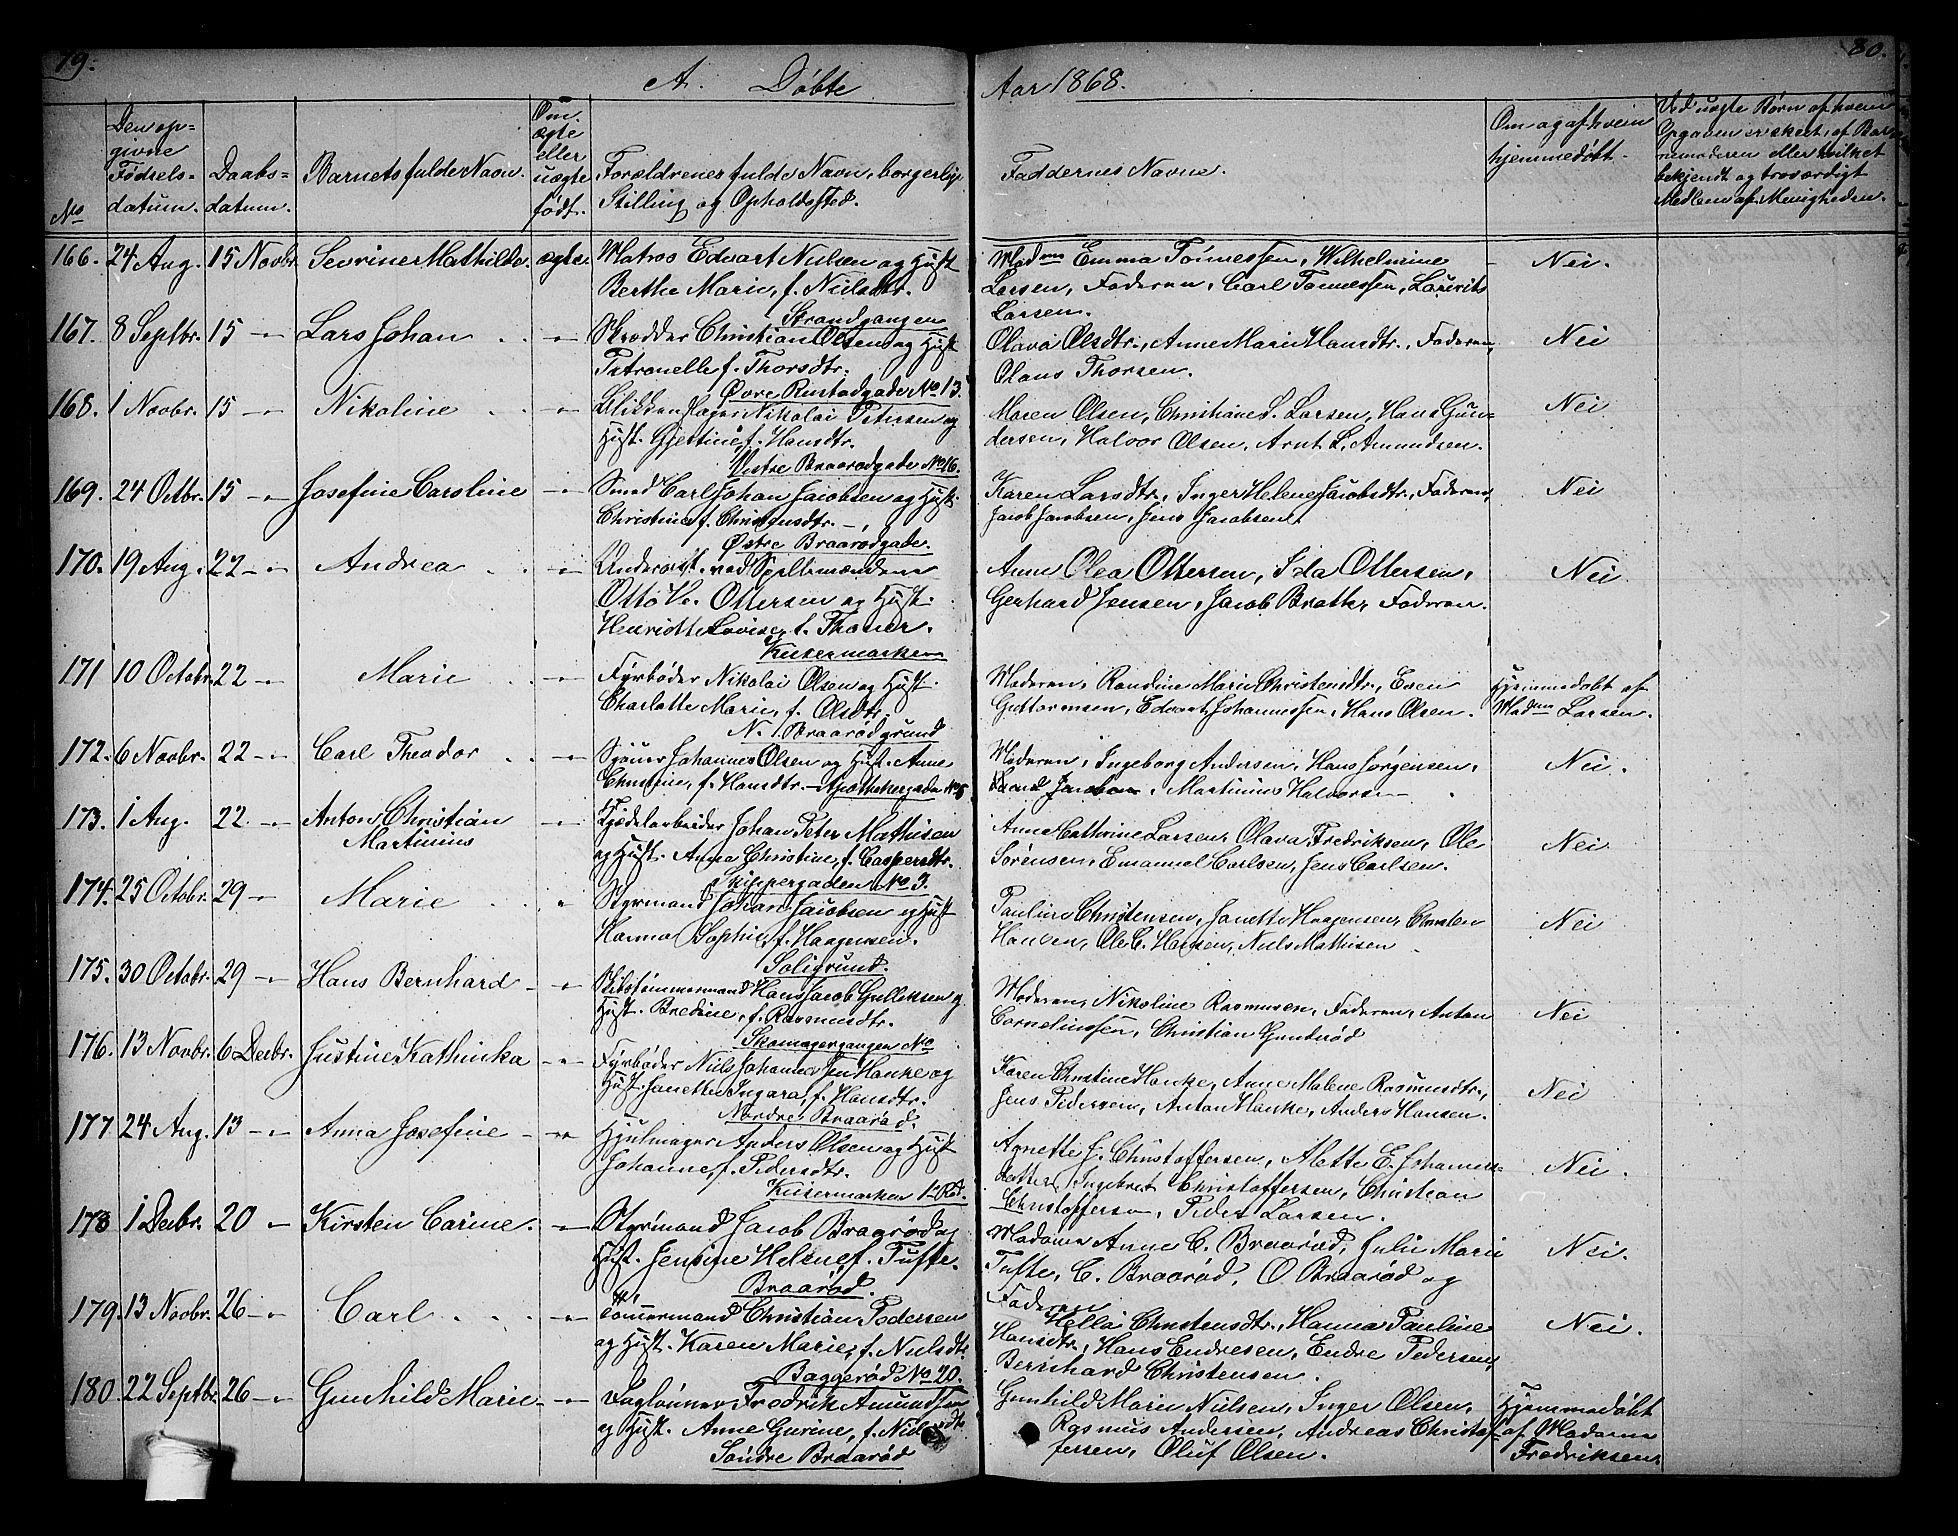 79.
80.
A. Døbte
Aar 1868.
No
Den op-
givne
Fødsels-
datum.
Daabs-
datum.
Barnets fulde Navn.
Om
ægte
eller
uægte
født.
Forældrenes fulde Navn, borgerlige
Stilling og Opholdssted.
Faddernes Navne.
Om og af hvem
hjemmedøbt.
Ved uægte Børn af hvem
Opgaven er skeet, af Bar-
nemoderen eller hvilket
bekjendt og troværdigt
Medlem af Menigheden.
166. 24 Aug. 15 Novbr. Sevrine Mathilde. ægte. Matros Edvart Nielsen og Hust
Berthe Marie, f. Nielsdtr.
Strandgangen
Madme Emma Tønnessen, Wilhelmine
Larsen, Faderen, Carl Tønnessen, Lauritz
Larsen.
Nei.
167. 8 Septbr. 15 -"- Lars Johan -"- Skrædder Christian Olsen og Hust
Petronelle f. Thorsdtr.
Øvre Rustadgade No 13.
Olava Olsdtr., Anne Marie Hansdtr., Faderen,
Olaus Thorsen.
Nei
168. 1 Novbr. 15 -"- Nikoline -"- Blikkenslager Nikolai Petersen og
Hust. Gjertine, f. Hansdtr.
Vestre Braarødgade No 16.
Maren Olsen, Christiane L. Larsen, Hans Gun-
dersen, Halvor Olsen, Arnt L. Amundsen.
Nei
169. 24 Octbr. 15 -"- Josefine Caroline -"- Smed Carl Johan Jacobsen og Hust.
Christine f. Christensdtr.
Østre Braarødgade.
Karen Larsdtr., Inger Helene Jacobsdtr., Faderen,
Jacob Jacobsen, Jens Jacobsen.
Nei
170. 19 Aug. 22 -"- Andrea -"- Underofst. ved Spillemændene
Otto Ve. Ottersen og Hust.
Henriette Lovise, f. Thaner.
Kirkermarken
Anne Olea Ottersen, Ida Ottersen,
Gerhard Jensen, Jacob Bratte, Faderen.
Nei
171 10 Octobr. 22 -"- Marie -"- Fyrbøder Nikolai Olsen og Hust.
Charlotte Marie, f. Olsdtr.
N. 1 Braarødgrund
Moderen, Randine Marie Christensdtr., Even
Guttormsen, Edvart Johannessen, Hans Olsen.
Hjemmedøbt af
Madme Larsen.
172. 6 Novbr. 22 -"- Carl Theodor -"- Sjouer Johannes Olsen og Hust. Anne
Christine, f. Hansdtr. - Apothekergaden No 5
Moderen, Ingeborg Andersen, Hans Jørgensen,
Jacobsen, Martinius Halvorsen
Nei.
173. 1 Aug. 22 -"- Anton Christian
Martinius -"- Kjædelarbeider Johan Peter Mathisen
og Hust. Anna Christine, f. Caspersdtr.
Skippergaden No 3.
Anne Cathrine Larsen, Olava Fredriksen, Ole
Sørensen, Emanuel Carlsen, Jens Carlsen.
Nei
174. 25 Octobr. 29 -"- Marie " Styrmand Johan Jacobsen og Hust
Hanna Sophie, f. Haagensen.
Soligrund.
Pauline Christensen, Janette Haagensen, Carsten
Hansen, Ole C. Hansen, Niels Mathisen
Nei
175. 30 Octobr. 29 -"- Hans Bernhard -"- Skibstømmermand Hans Jacob Gulliksen og
Hust. Bredine, f. Rasmusdtr.
Skomagergangen No
Moderen, Nikoline Rasmussen, Faderen, Anton
Corneliussen, Christian Gunderød
Nei
176. 13 Novbr. 6 Decbr. Justine Kathinka -"- Fyrbøder Niels Johannessen Hanke og
Hust. Janette Ingara, f. Hansdtr.
Nordre Braarød.
Karen Christine Hanke, Anne Malene Rasmusdtr.,
Jens Pedersen, Anton Hanke, Anders Hansen.
Nei
177 24 Aug. 13 -"- Anna Josefine -"- Hjulmager Anders Olsen og Hust
Johanne, f. Pedersdtr.
Kirkermarken 1ste Rd.
Agnette J. Christoffersen, Alette E. Johannes-
datter, Ingebret Christoffersen, Christian
Christoffersen, Peder Larsen.
Nei.
178 1 Decbr. 20 -"- Kirsten Carine. -"- Styrmand Jacob Braarød og
Hust. Jensine Helene f. Tufte.
Braarød.
Madame Anne C. Braarød, Julie Marie
Tufte, C. Braarød, O Braarød og
Faderen
Nei.
179. 13 Novbr. 26 -"- Carl -"- Tømmermand Christian Pedersen
og Hust. Karen Marie, f. Nielsdtr.
Baggerød No 20.
Hella Christensdtr., Hanna Pauline
Hansdtr., Hans Endresen, Endre Pedersen,
Bernhard Christensen.
Nei.
180. 22 Septbr. 26 -"- Gunhild Marie -"- Dagløner Fredrik Amundsen
og Hust. Anne Gurine, f. Nielsdtr
Søndre Braarød
Gunhild Marie Nielsen, Inger Olsen,
Rasmus Andersen, Andreas Christof-
fersen, Oluf Olsen.
Hjemmedøbt
af Madame
Fredriksen.